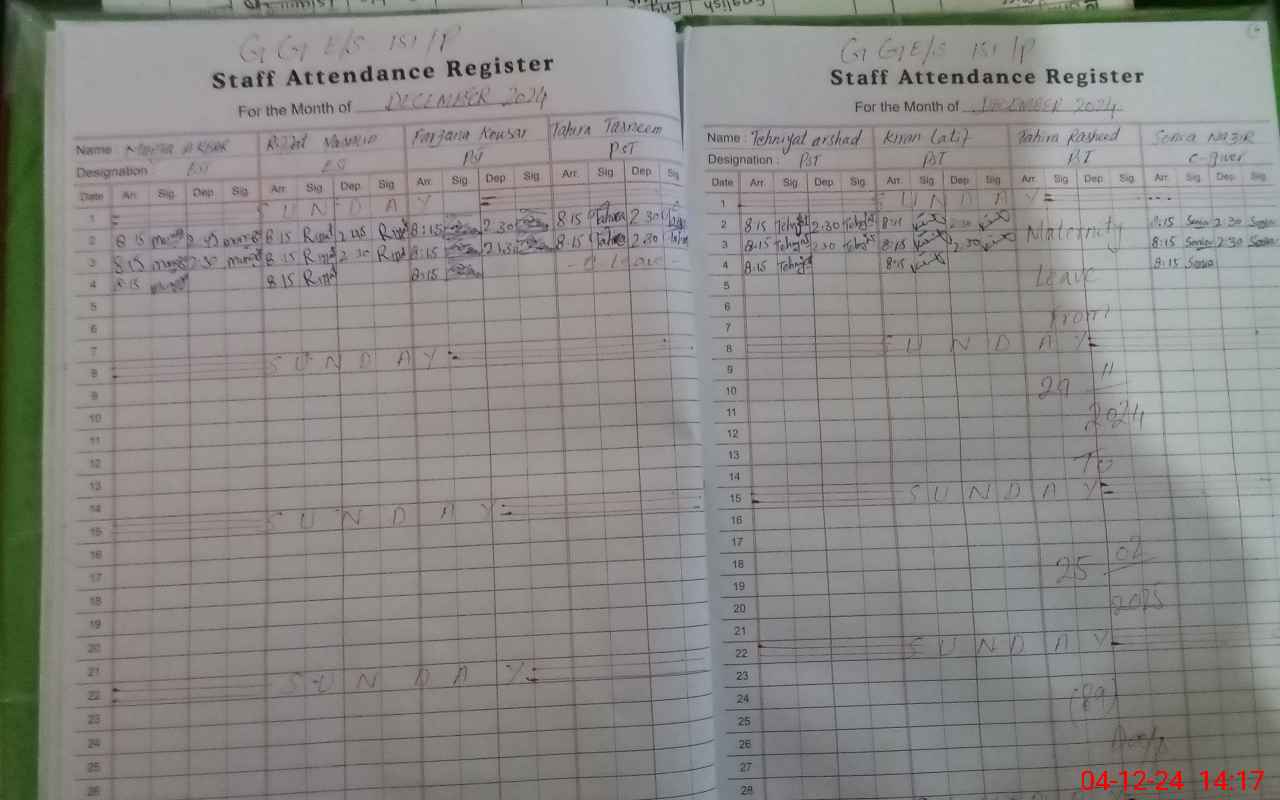 G G E/S 151/P
Staff Attendance Register
For the Month of DECEMBER 2024
Name Riffat Farzana Kousar Tahira Tasneem
Designation PST PST
Date Arr. Sig. Dep. Sig. Arr. Sig. Dep. Sig. Arr. Sig. Dep. Sig. Arr. Sig. Dep. Sig.
1 SUNDAY
2 8 15 2 45 8 15 2 45 8:15 2.30 8 15 Tahira 2 30
3 8:15 2 30 8 15 2 30 8:15 2:30 8:15 2 30
4 8:15 8 15 8:15 Leave
5
6
7
8 SUNDAY
9
10
11
12
13
14
15 SUNDAY
16
17
18
19
20
21
22 SUNDAY
23
24
25
26
G G E/S 151/P
Staff Attendance Register
For the Month of DECEMBER 2024
Name : Tehniyat arshad Kiran Latif Tahira Rasheed Sonia Nazir
Designation : PST PST PST C-giver
Date Arr. Sig. Dep. Sig. Arr. Sig. Dep. Sig. Arr. Sig. Dep. Sig. Arr. Sig. Dep. Sig.
1 SUNDAY
2 8 15 2:30 8:15 2 30 Maternity 8:15 Sonia 2:30 Sonia
3 8:15 2 30 8:15 2 30 8:15 Sonia 2:30 Sonia
4 8:15 8:15 Leave 8:15 Sonia
5
6 From
7
8 SUNDAY
9 11
10 29
11 2024
12
13 To
14
15 SUNDAY
16
17 02
18 25
19
20 2025
21
22 SUNDAY
23
24 (89)
25
26 Days
27
28
04-12-24 14:17